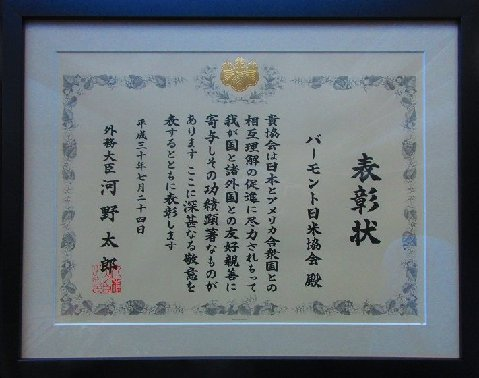 表彰状
バーモント日米協会 殿
貴協会は日本とアメリカ合衆国との
相互理解の促進に尽力されもって
我が国と諸外国との友好親善に
寄与しその功績顕著なものが
あります ここに深甚なる敬意を
表するとともに表彰します
平成三十年七月二十四日
外務大臣 河野太郎